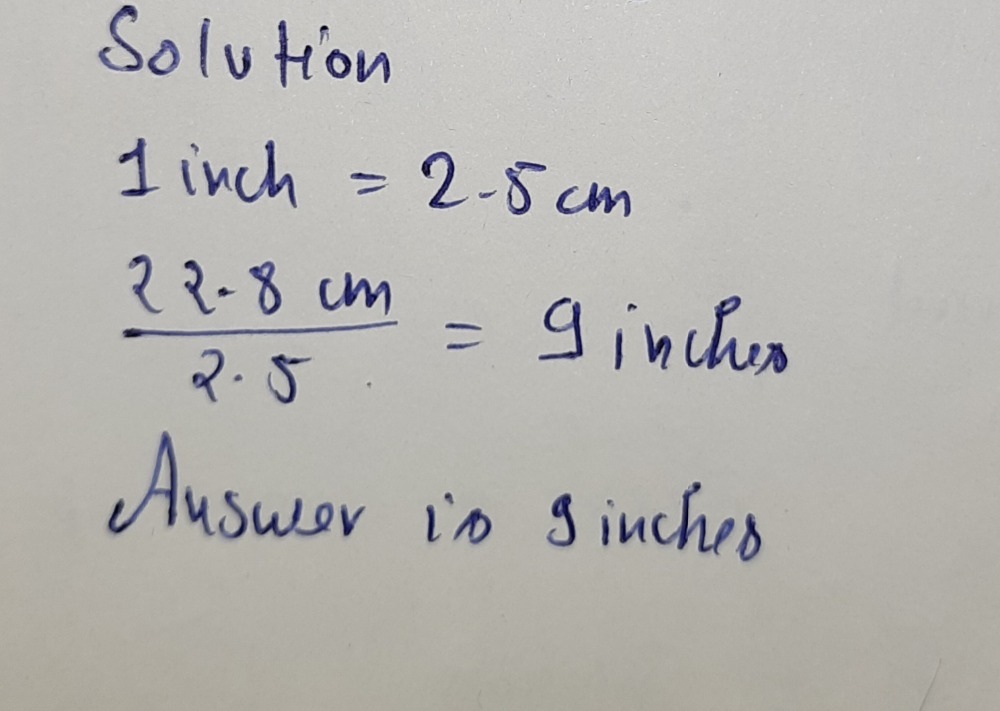 Solution
1 inch = 2.5 cm
22.8 cm
2.5
= 9 inches
Answer is 9 inches